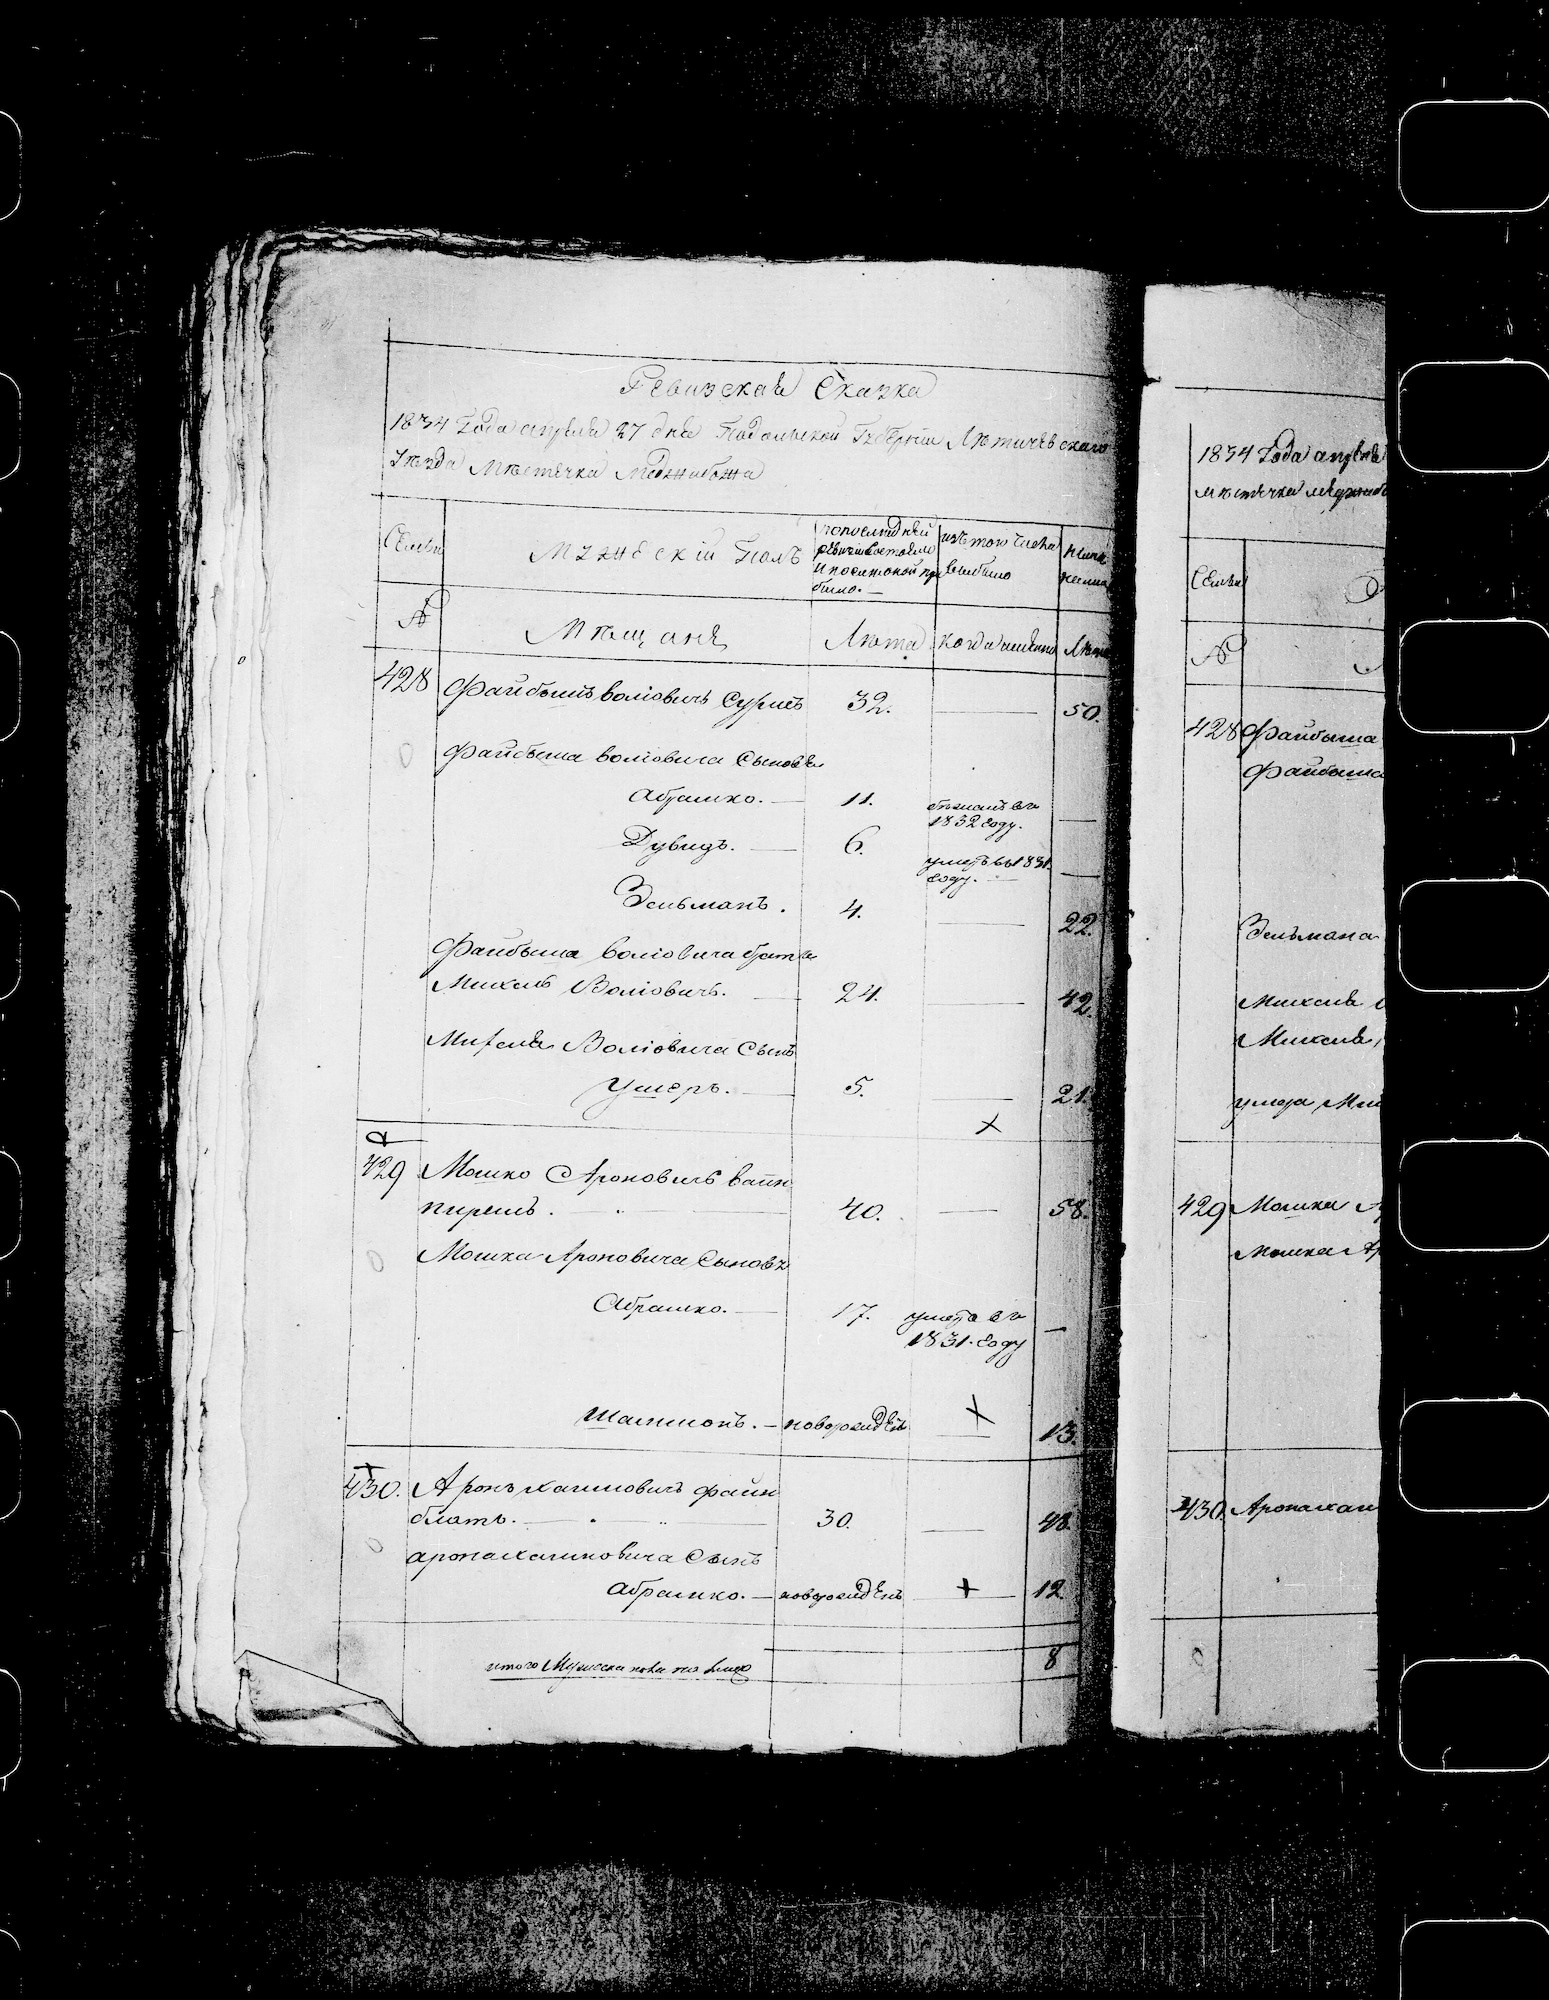 Ревизская Сказка
1834 Года апреля 27 дня Подольской Губернiи Лѣтичевскаго
Уѣзда Мѣстечка Меджибожа
Семьи
Мужескiй Полъ
по последней ревизiи состояло и после оной прибыло.
изъ того числа выбыло
ныне налицо
№
Мѣщане
Лѣта
когда именно
Лѣта
428 Файбышъ Волiовичъ 32. — 50.
Файбыша Волiовича Сыновья
Абрамко. — 11. въ 1832 году. —
Дувидъ. — 6. умеръ въ 1831 году. —
Зельманъ. 4. — 22.
Файбыша Волiовича братъ
Михель Волiовичъ. — 24. — 42.
Михеля Волiовича Сынъ
Умеръ. — 5. — 21.
429 Мошко Ароновичъ вайн
40. — 58.
Мошка Ароновича Сыновья
Абрамко. — 17. умеръ въ 1831. году —
Шамшонъ. — новорожденъ — 13.
430. Аронъ Хаимовичъ файн
блатъ. — 30. — 48.
Арона Хаимовича Сынъ
Абрамко. — новорожденъ — 12.
итого Мужеска пола на лицо 8
1834 Года апреля
мѣстечка меджибо
Семьи
№
428 Файбыша
Файбыша
Зельмана
Михеля
Михеля
умера Ми
429 Мошка А
Мошка Ар
430. Арона хаи